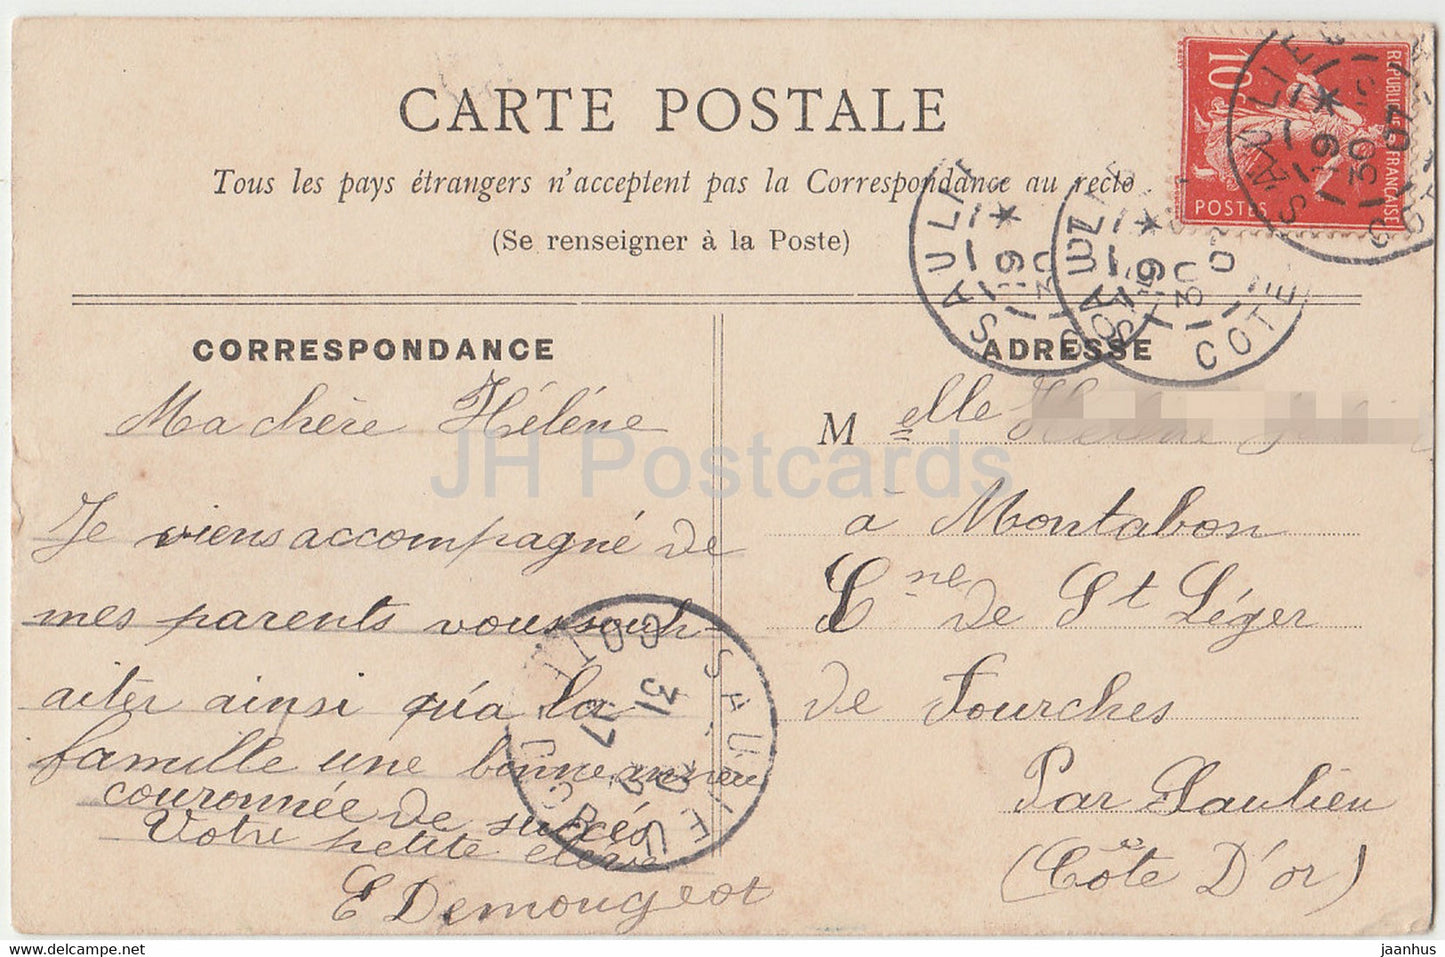 CARTE POSTALE
Tous les pays étrangers n'acceptent pas la Correspondance au recto
(Se renseigner à la Poste)
10c
REPUBLIQUE FRANÇAISE
POSTES
SAULIEU
19 30
COTE
CORRESPONDANCE
ADRESSE
Ma chère Hélène
Je viens accompagné de
mes parents vous souh-
aiter ainsi qu'a la
famille une bonne année
couronnée de succés
Votre petite élève
E Demougeot
M elle Hélène
à Montabon
Cne de St Léger
de Fourches
Par Saulieu
(Côte D'or)
SAULIEU
COTE D'OR
31
JH Postcards
www.jhpostcards.com
jaanhus